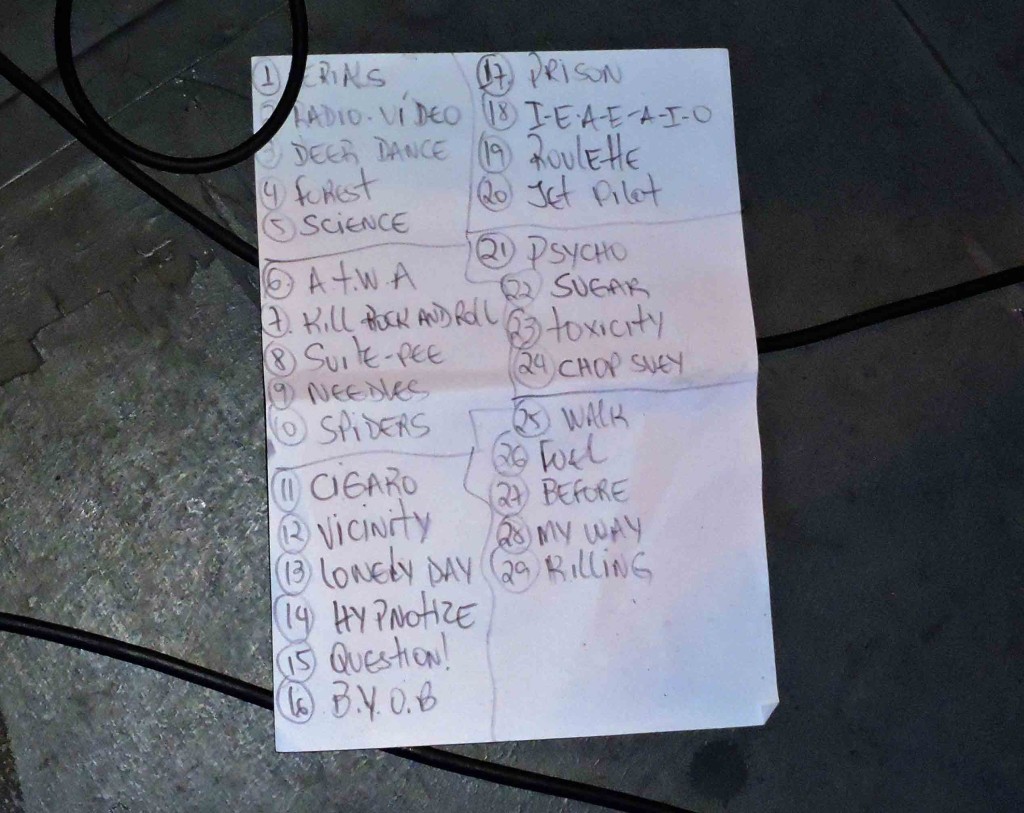 1 ERIALS
RADIO-VIDEO
3 DEER DANCE
4 FOREST
5 SCIENCE
6. A.T.W.A
7. Kill ROCK AND Roll
8 SUITE-PEE
9 NEEDLES
0 SPIDERS
11 CIGARO
12 VICINITY
13 LONELY DAY
14 HYPNOTIZE
15 QUESTION!
16 B.Y.O.B
17 PRISON
18 I-E-A-E-A-I-O
19 ROULETTE
20 Jet Pilot
21 PSYCHO
22 SUGAR
23 TOXICITY
24 CHOP SUEY
25 WALK
26 Fuel
27 BEFORE
28 MY WAY
29 KILLING